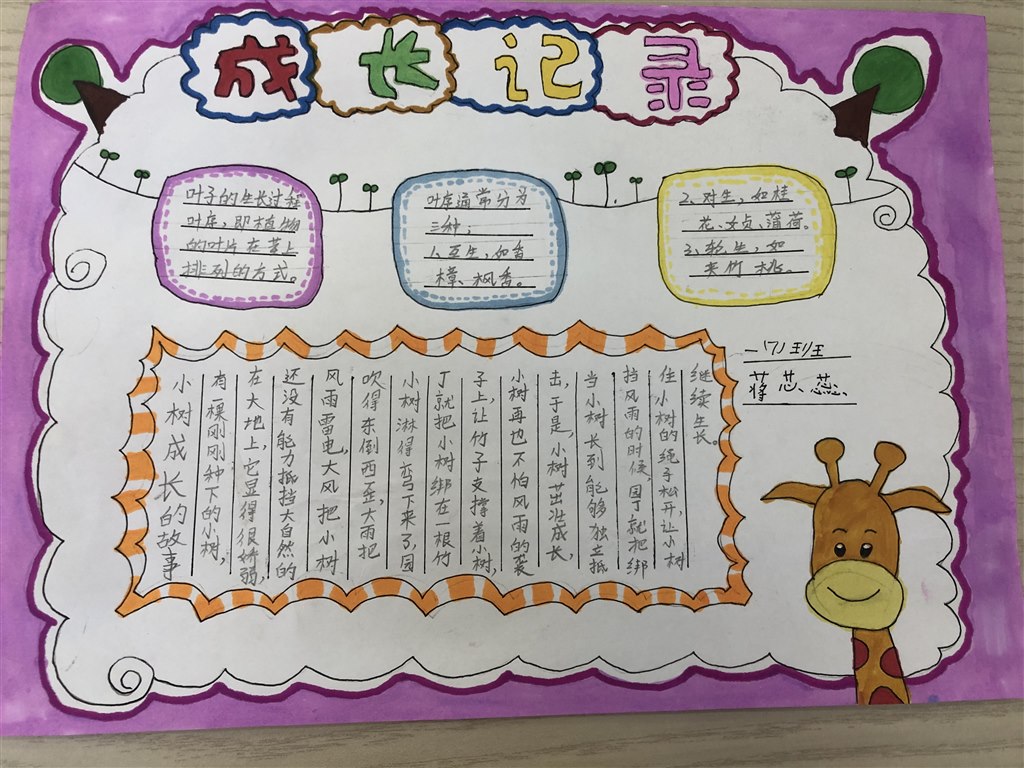 成长记录
叶子的生长过程
叶序,即植物
的叶片在茎上
排列的方式。
叶序通常分为
三种:
1、互生,如香
樟、枫香。
2、对生,如桂
花、女贞、薄荷。
3、轮生,如
夹竹桃。
小树成长的故事
有一棵刚刚种下的小树,
在大地上,它显得很娇弱,
还没有能力抵挡大自然的
风雨雷电,大风把小树
吹得东倒西歪,大雨把
小树淋得弯下来了,园
丁就把小树绑在一根竹
子上,让竹子支撑着小树,
小树再也不怕风雨的袭
击,于是,小树茁壮成长,
当小树长到能够独立抵
挡风雨的时候,园丁就把绑
住小树的绳子松开,让小树
继续生长。
一(7)班
蒋芯蕊